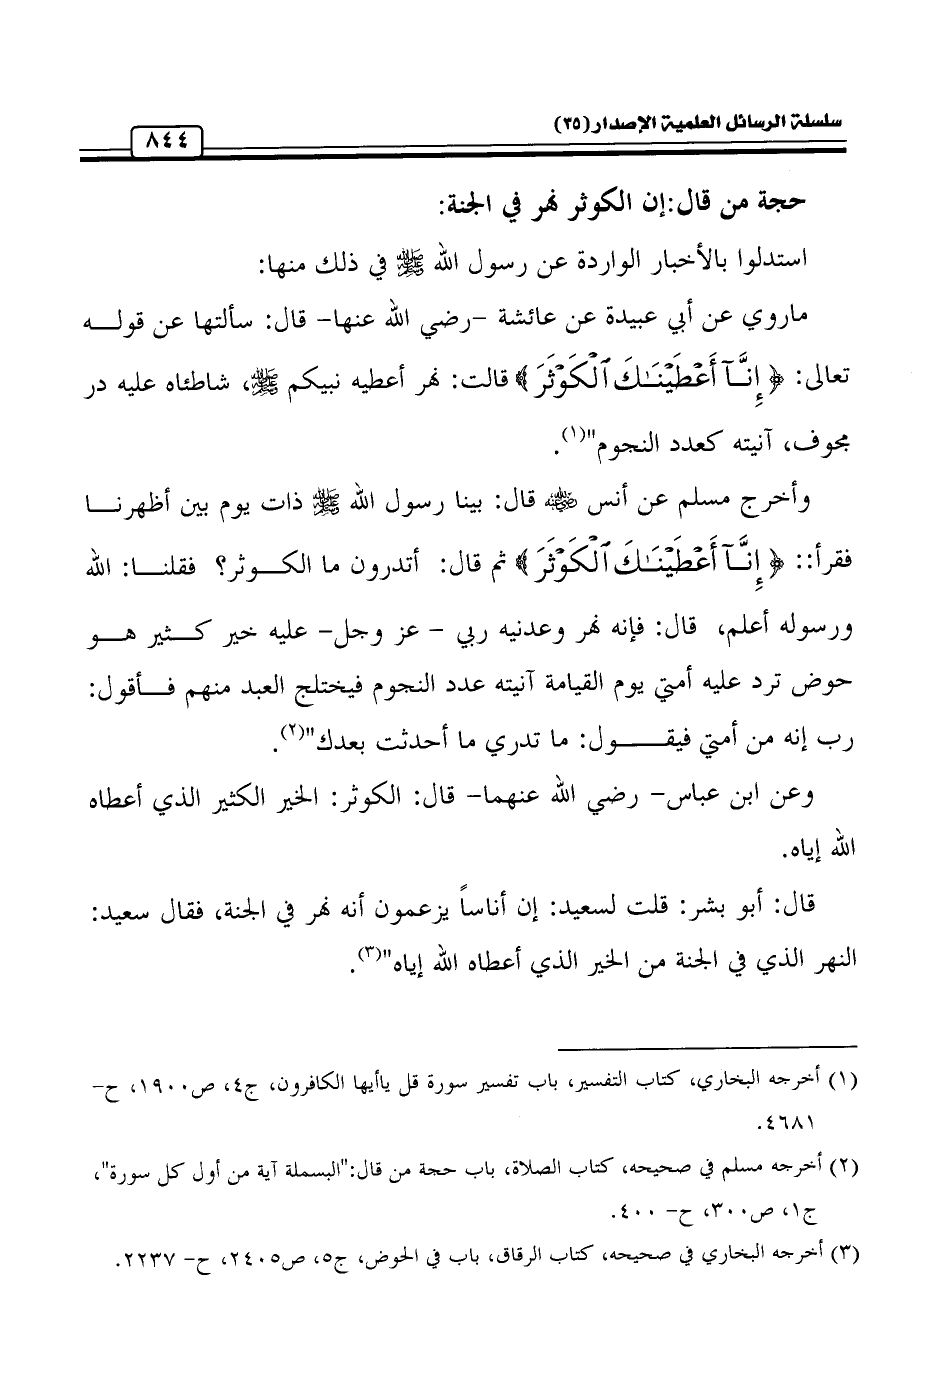 سلسلة الرسائل العلمية الإصدار(٢٥)
٨٤٤
حجة من قال:إن الكوثر نهر في الجنة:
استدلوا بالأخبار الواردة عن رسول الله ﷺ في ذلك منها:
ماروي عن أبي عبيدة عن عائشة -رضي الله عنها- قال: سألتها عن قولـــه
تعالى: ﴿إِنَّآ أَعْطَيْنَـٰكَ ٱلْكَوْثَرَ﴾ قالت: نهر أعطيه نبيكم ﷺ، شاطئاه عليه در
مجوف، آنيته كعدد النجوم"(١).
وأخرج مسلم عن أنس ﵁ قال: بينا رسول الله ﷺ ذات يوم بين أظهرنـــا
فقرأ:: ﴿إِنَّآ أَعْطَيْنَـٰكَ ٱلْكَوْثَرَ﴾ ثم قال: أتدرون ما الكـــوثر؟ فقلنـــا: الله
ورسوله أعلم، قال: فإنه نهر وعدنيه ربي - عز وجل- عليه خير كـــثير هـــو
حوض ترد عليه أمتي يوم القيامة آنيته عدد النجوم فيختلج العبد منهم فـــأقول:
رب إنه من أمتي فيقـــــول: ما تدري ما أحدثت بعدك"(٢).
وعن ابن عباس- رضي الله عنهما- قال: الكوثر: الخير الكثير الذي أعطاه
الله إياه.
قال: أبو بشر: قلت لسعيد: إن أناساً يزعمون أنه نهر في الجنة، فقال سعيد:
النهر الذي في الجنة من الخير الذي أعطاه الله إياه"(٣).
(١) أخرجه البخاري، كتاب التفسير، باب تفسير سورة قل ياأيها الكافرون، ج٤، ص١٩٠٠، ح-
٤٦٨١.
(٢) أخرجه مسلم في صحيحه، كتاب الصلاة، باب حجة من قال:"البسملة آية من أول كل سورة"،
ج١، ص٣٠٠، ح- ٤٠٠.
(٣) أخرجه البخاري في صحيحه، كتاب الرقاق، باب في الحوض، ج٥، ص٢٤٠٥، ح- ٢٢٣٧.